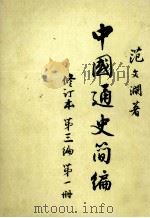 中國通史简编
范文瀾著
修订本 第三编 第一册